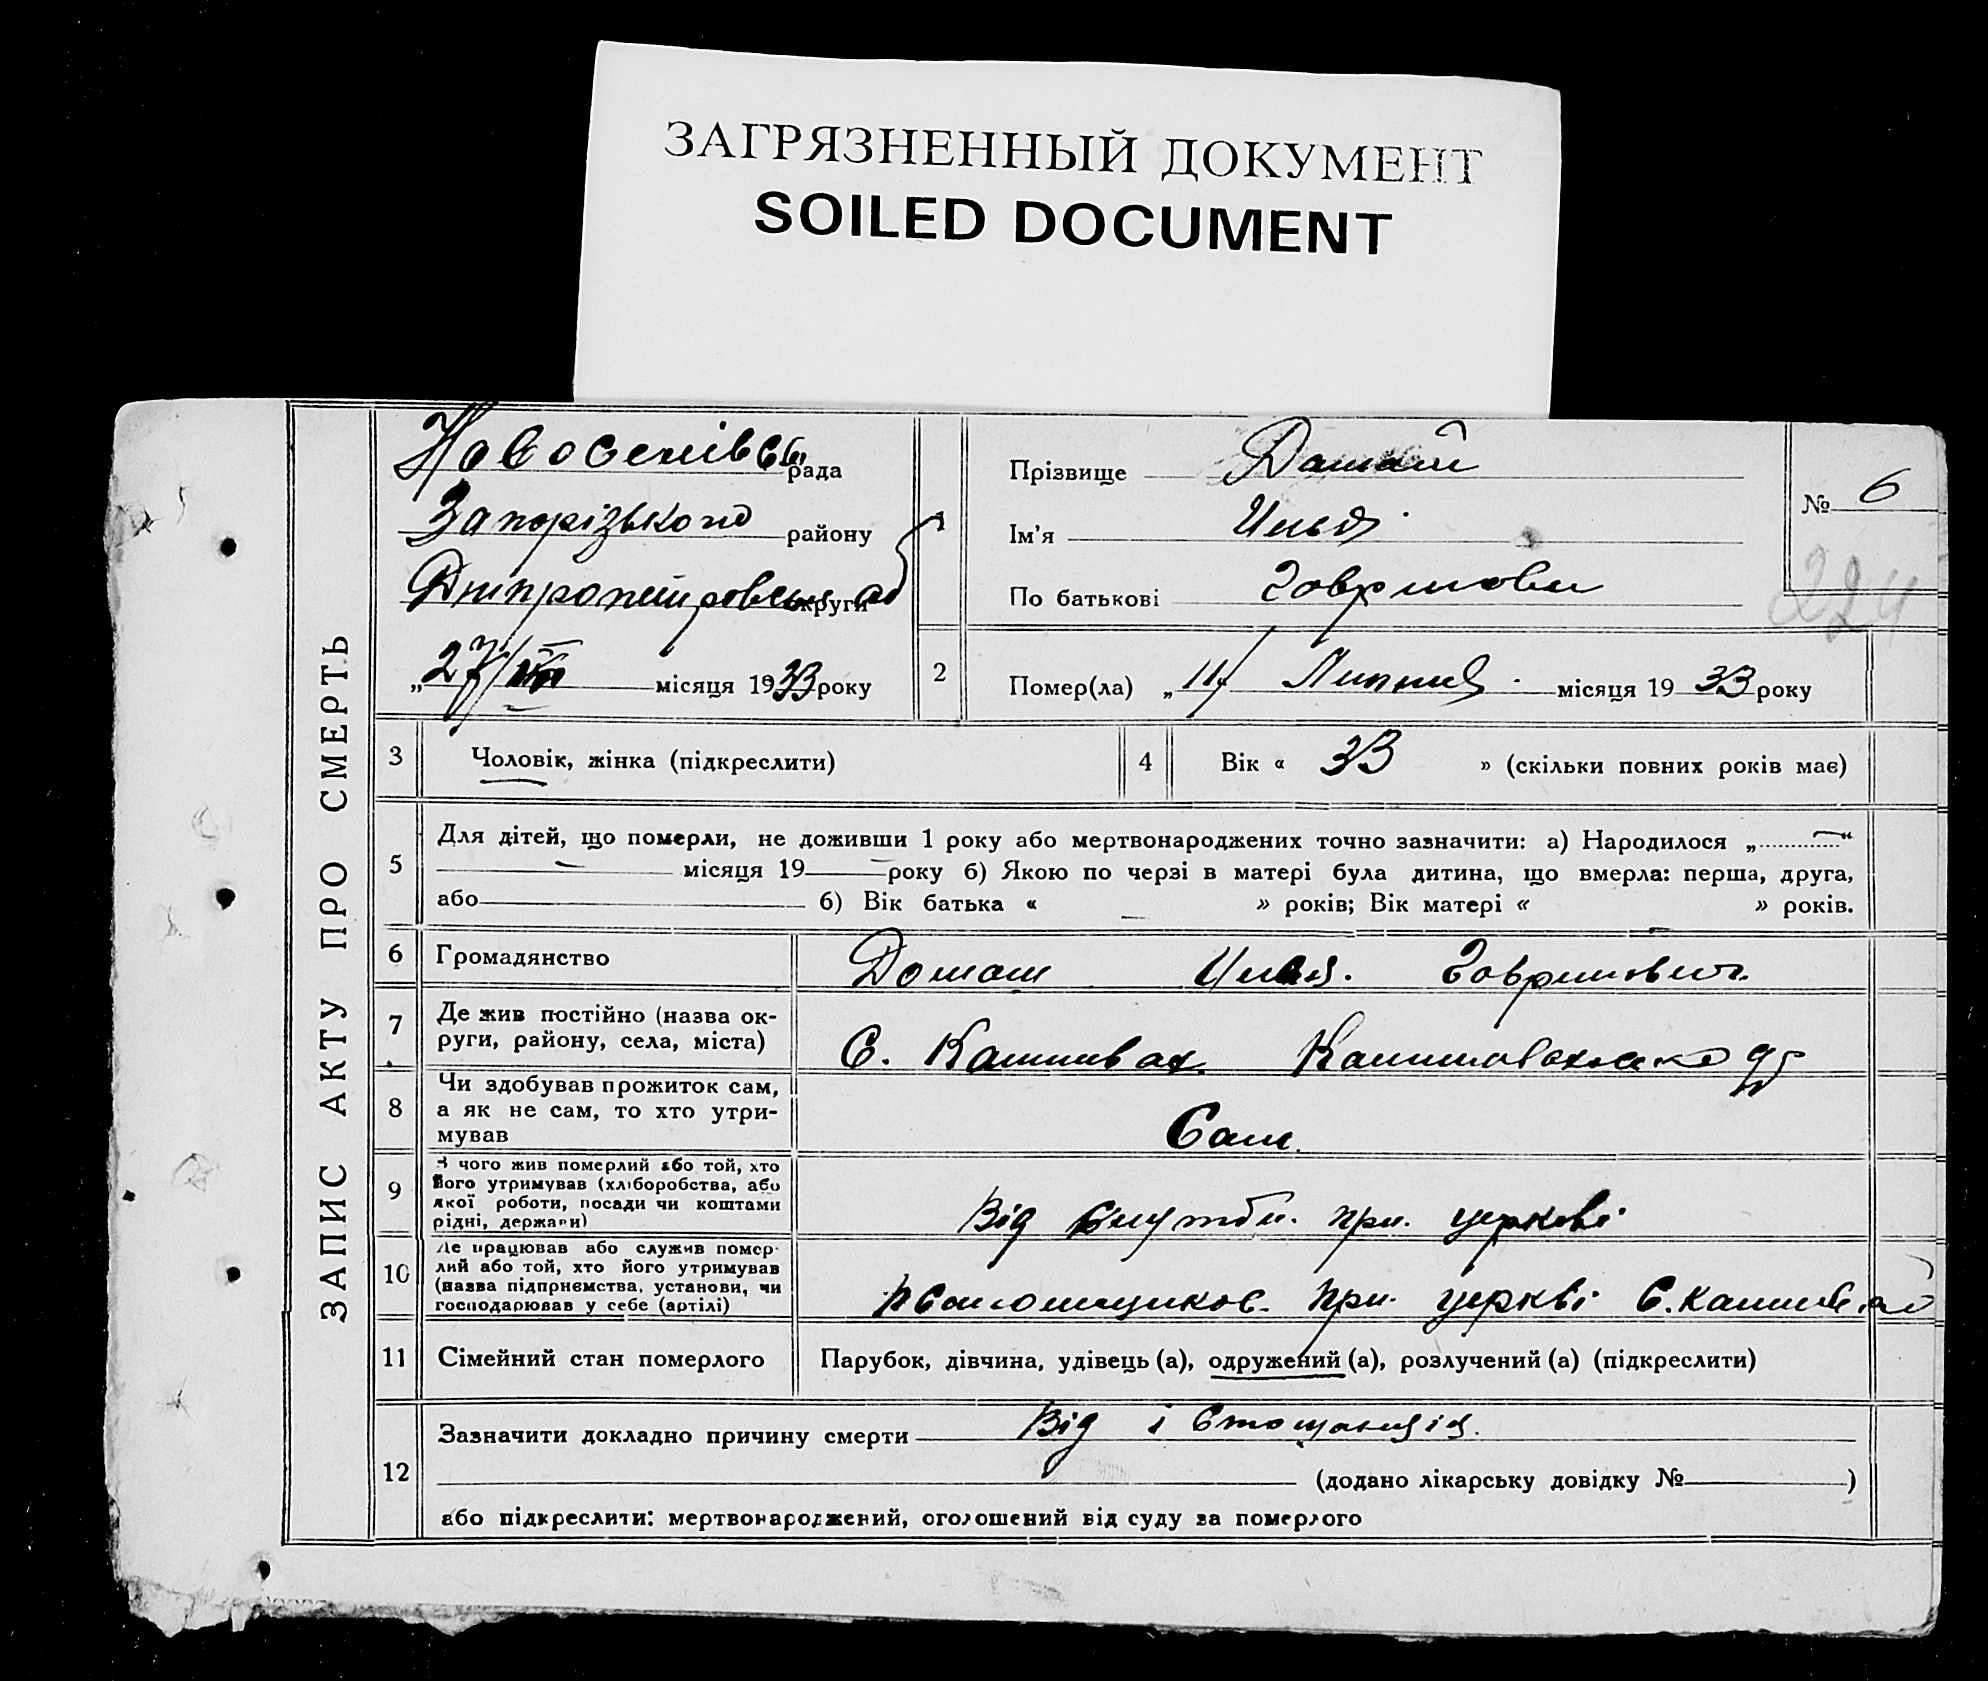 ЗАГРЯЗНЕННЫЙ ДОКУМЕНТ
SOILED DOCUMENT
ЗАПИС АКТУ ПРО СМЕРТЬ
рада
Запорізького району
округи
„27/ місяця 1933 року
1
Прізвище
Ім'я Илья
По батькові
№ 6
224
2
Помер(ла) „11 Липня місяця 1933 року
3
Чоловік, жінка (підкреслити)
4
Вік « 33 » (скільки повних років має)
5
Для дітей, що померли, не доживши 1 року або мертвонароджених точно зазначити: а) Народилося „ “
місяця 19 року б) Якою по черзі в матері була дитина, що вмерла: перша, друга,
або б) Вік батька « » років; Вік матері « » років.
6
Громадянство
Илья
7
Де жив постійно (назва ок-
руги, району, села, міста)
С.
8
Чи здобував прожиток сам,
а як не сам, то хто утри-
мував
Сам
9
З чого жив померлий або той, хто
його утримував (хліборобства, або
якої роботи, посади чи коштами
рідні, держави)
Від службы при церкві
10
Де працював або служив помер-
лий або той, хто його утримував
(назва підприємства, установи, чи
господарював у себе (артілі)
при церкві С.
11
Сімейний стан померлого
Парубок, дівчина, удівець (а), одружений (а), розлучений (а) (підкреслити)
12
Зазначити докладно причину смерти Від істощанія
(додано лікарську довідку № )
або підкреслити: мертвонароджений, оголошений від суду за померлого